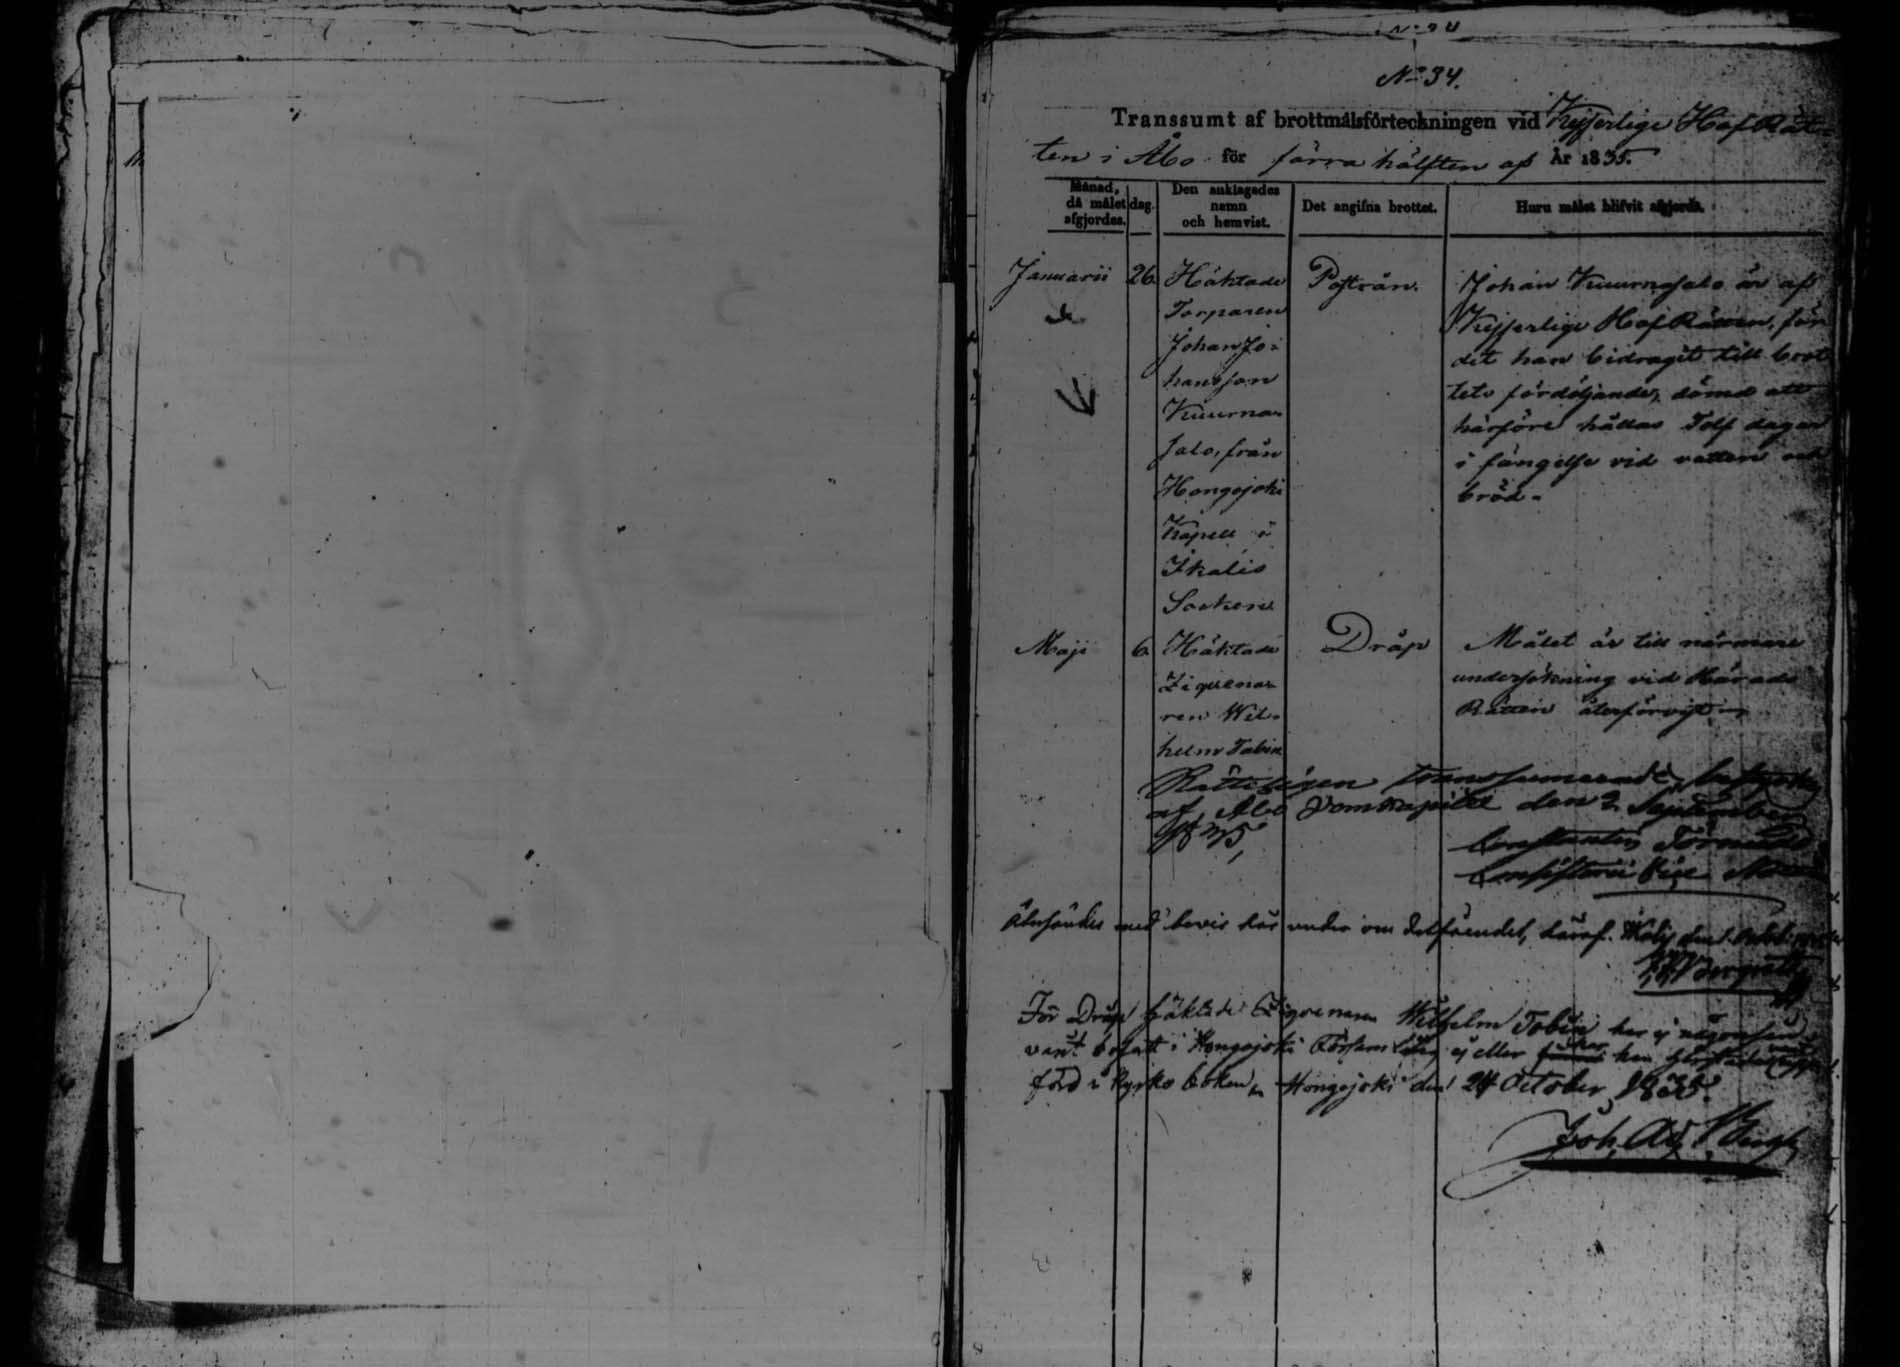 No 34.
Transsumt af brottmålsförteckningen vid Kejserlige Hof Rät-
ten i Åbo för förra hälften af År 1835.
Månad, då målet afgjordes. dag. Den anklagades namn och hemvist. Det angifna brottet. Huru målet blifvit afgjordt.
Januarii 26 Häktade
Torparen
Johan Jo-
hansson
Kuurna-
salo, från
Hongojoki
Kapell i
Ikalis
Socken
Poströn.
Johan Kuurnasalo är af
Kejserlige Hof Rätten, för
det han bidragit till brot
tets fördöljande, dömd att
härföre hållas Tolf dagar
i fängelse vid vatten och
bröd.
Maji 6. Häktade
Ziguena-
ren Wil-
helm Tobin
Dråp
Målet är till närmare
undersökning vid Härads
Rätten återförvist.
Rätteligen transsumeradt, betygar
af Åbo Domkapitel den 2 September
1835,
Constantin
Consistorii Vice
Återsändes med bevis här under om
För Dråp häktade Ziguenaren Wilhelm Tobin har ej någonsin
varit bosatt i Hongojoki Församling ej eller har han
förd i Kyrko boken, Hongojoki den 24 October 1835.
Joh. Ad.